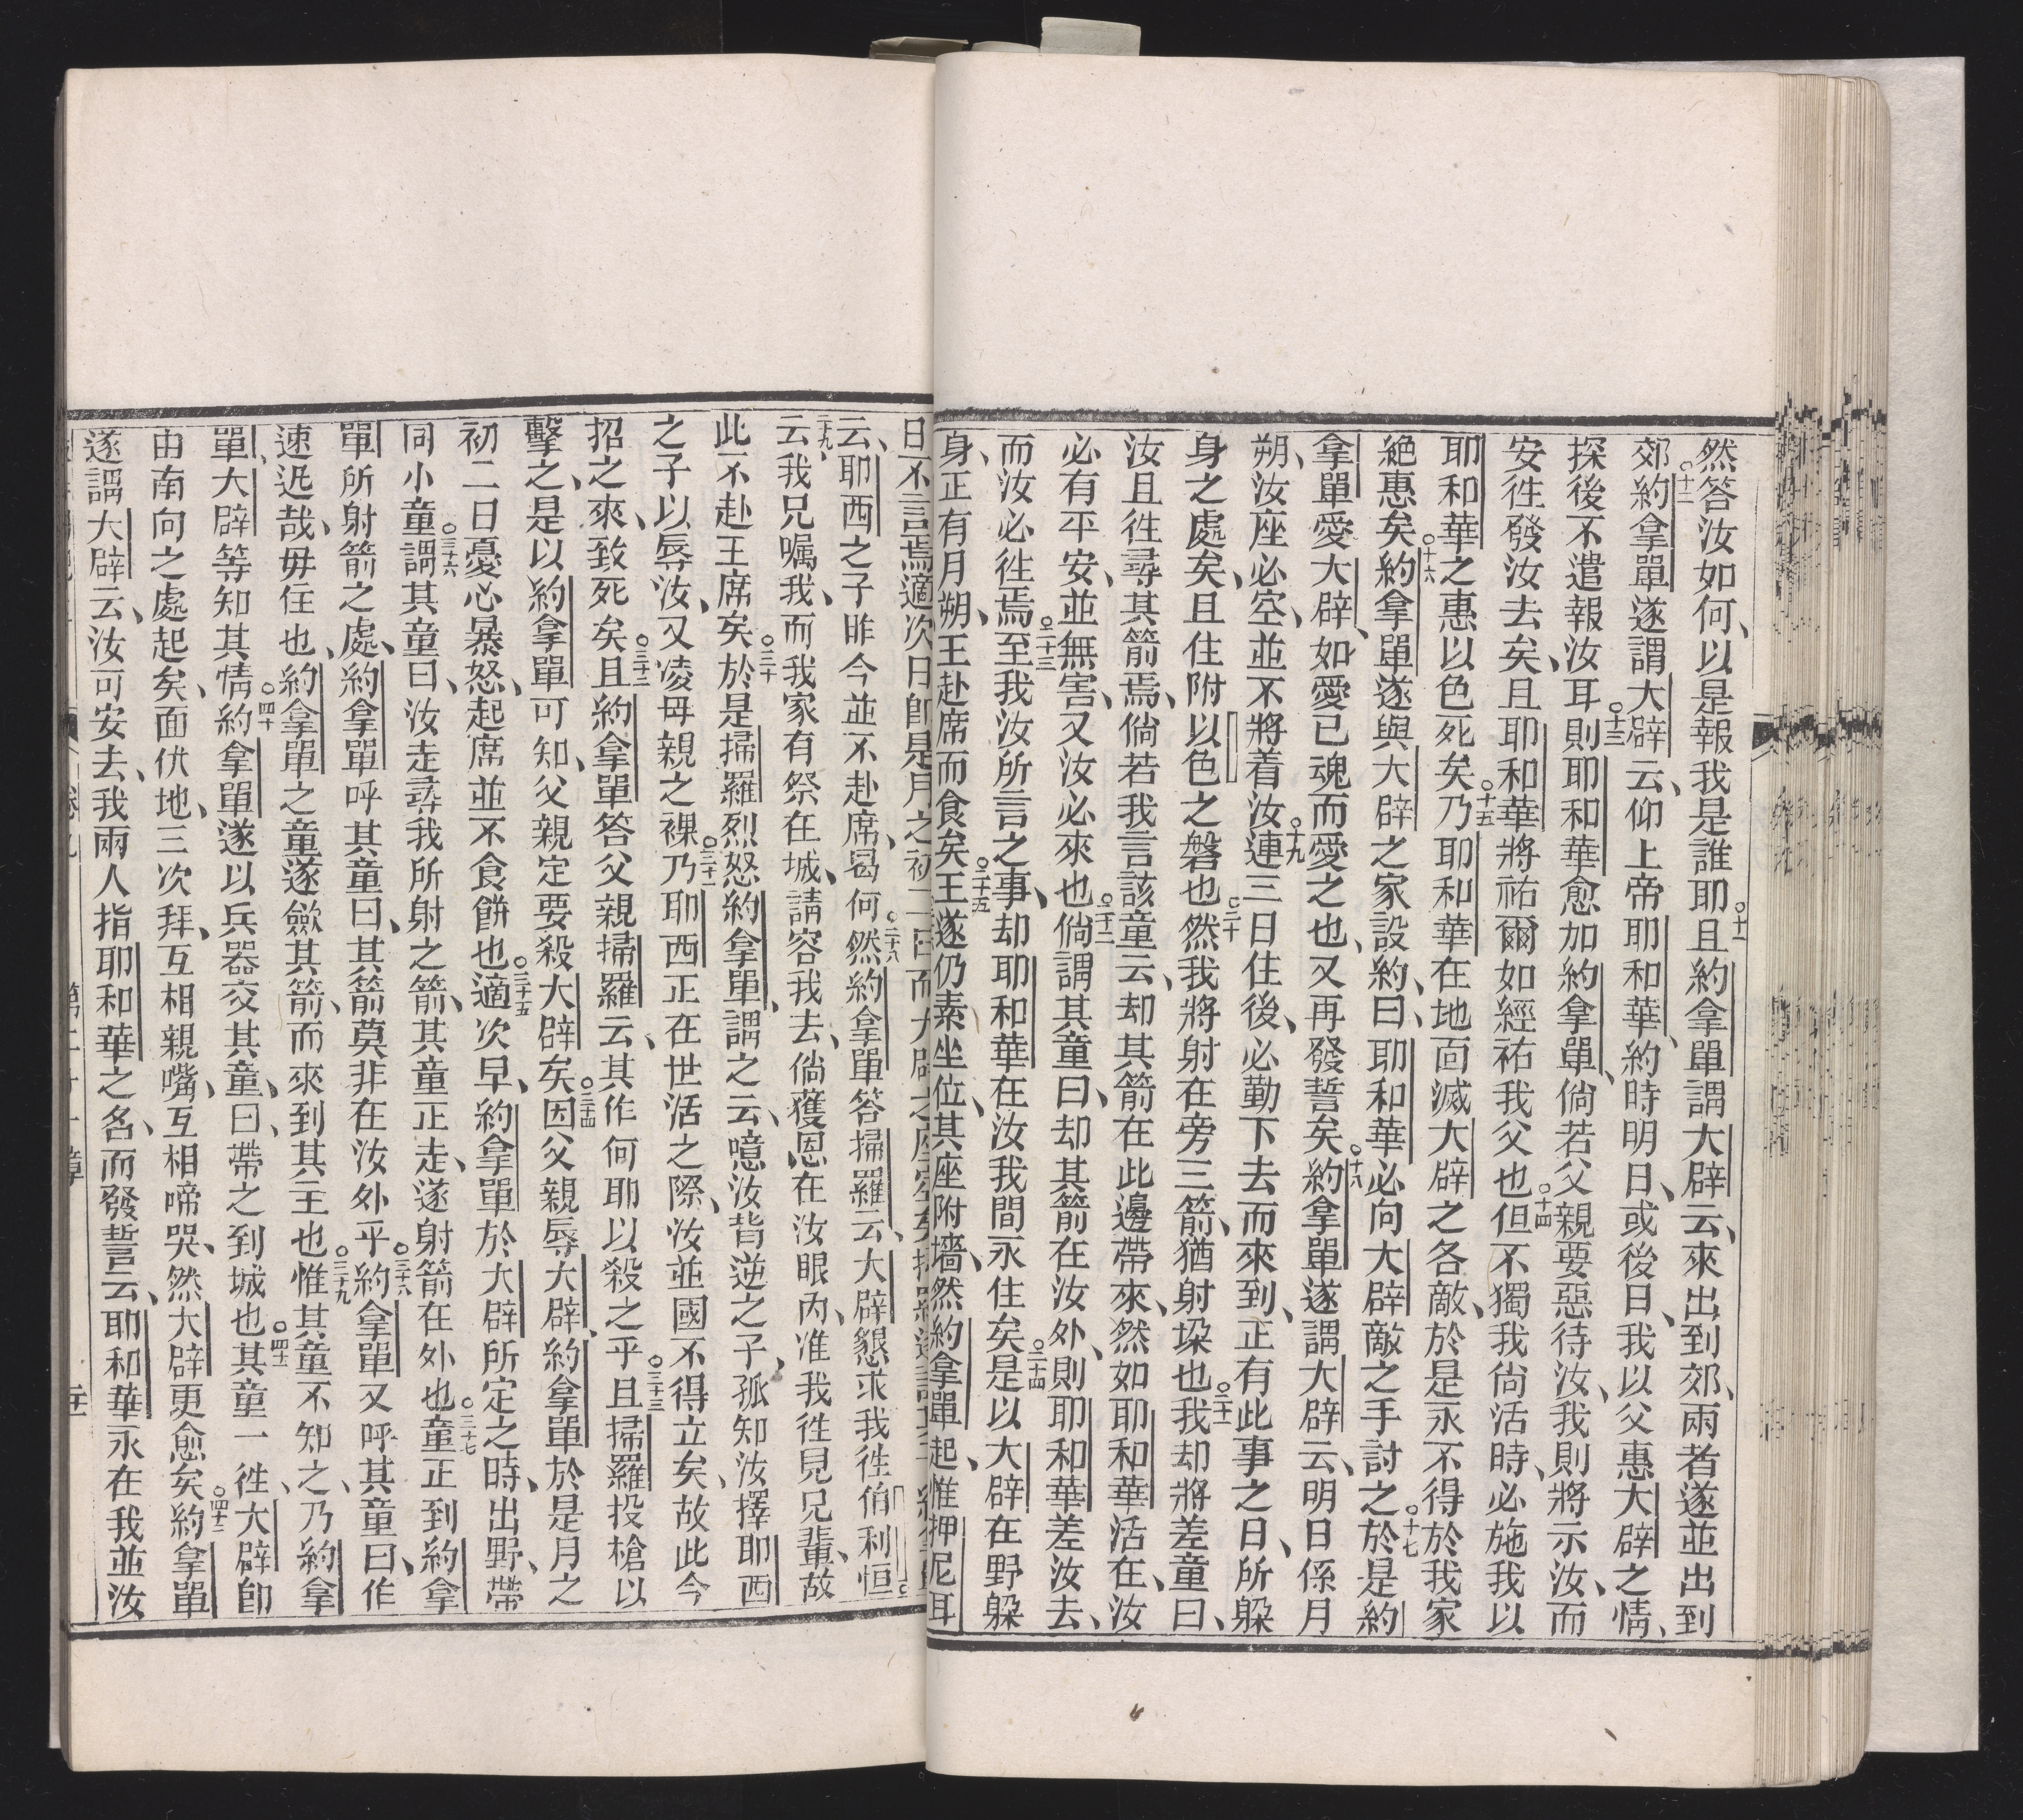 然答汝如何、以是報我是誰耶○十一且約拿單謂大辟云、來出到郊、兩者遂並出到
郊○十二約拿單遂謂大辟云、仰上帝耶和華、約時明日、或後日、我以父惠大辟之情、
探後不遣報汝耳○十三則耶和華愈加約拿單、倘若父親要惡待汝、我則將示汝、而
安徃發汝去矣、且耶和華將祐爾如經祐我父也○十四但不獨我尙活時、必施我以
耶和華之惠以色死矣○十五乃耶和華在地面滅大辟之各敵、於是永不得於我家
絕惠矣○十六約拿單遂與大辟之家設約、曰、耶和華必向大辟敵之手討之○十七於是約
拿單愛大辟、如愛已魂而愛之也、又再發誓矣○十八約拿單遂謂大辟云、明日係月
朔、汝座必空、並不將着汝○十九連三日住後、必勤下去而來到、正有此事之日、所躲
身之處矣、且住附以色之磐也○二十然我將射在旁三箭、猶射垜也○二十一我却將差童曰、
汝且徃尋其箭焉、倘若我言該童云、却其箭在此邊帶來、然如耶和華活在、汝
必有平安、並無害、又汝必來也○二十二倘謂其童曰、却其箭在汝外、則耶和華差汝去、
而汝必徃焉○二十三至我汝所言之事、却耶和華在汝我間永住矣○二十四是以大辟在野躲
身、正有月朔、王赴席而食矣○二十五王遂仍素坐位、其座附墻、然約拿單起、惟押尼耳
日不言焉適次日卽是月之初二日而大辟之座空矣
云、耶西之子昨今並不赴席、曷何○二十八然約拿單答掃羅云、大辟懇求我徃伯利恒
二十九云我兄囑我、而我家有祭在城、請容我去、倘獲恩在汝眼內、准我徃見兄輩、故
此不赴王席矣○三十於是掃羅烈怒約拿單、謂之云、噫汝背逆之子、孤知汝擇耶西
之子以辱汝、又凌母親之裸○三十一乃耶西正在世活之際、汝並國不得立矣、故此今
招之來、致死矣○三十二且約拿單答父親掃羅云、其作何耶以殺之乎○三十三且掃羅投槍以
擊之、是以約拿單可知、父親定要殺大辟矣○三十四因父親辱大辟、約拿單於是月之
初二日憂心暴怒、起席並不食餅也○三十五適次早、約拿單於大辟所定之時、出野、帶
同小童○三十六謂其童曰、汝走尋我所射之箭、其童正走、遂射箭在外也○三十七童正到約拿
單所射箭之處、約拿單呼其童曰、其箭莫非在汝外乎○三十八約拿單又呼其童曰、作
速迯哉、毋住也、約拿單之童遂歛其箭、而來到其主也○三十九惟其童不知之、乃約拿
單、大辟等知其情○四十約拿單遂以兵器交其童、曰、帶之到城也○四十一其童一徃、大辟卽
由南向之處起矣、面伏地、三次拜、互相親嘴、互相啼哭、然大辟更愈矣○四十二約拿單
遂謂大辟云、汝可安去、我兩人指耶和華之名、而發誓云、耶和華永在我並汝